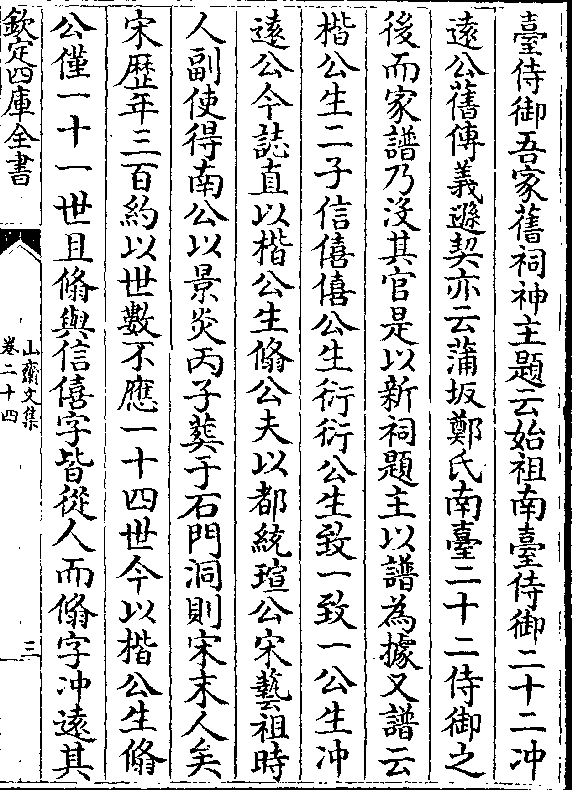 臺侍御吾家舊祠神主題云始祖南臺侍御二十二冲
遠公舊傳義遜契亦云蒲坂鄭氏南臺二十二侍御之
後而家譜乃沒其官是以新祠題主以譜為據又譜云
楷公生二子信僖僖公生衍衍公生致一致一公生冲
遠公今誌直以楷公生脩公夫以都統瑄公宋藝祖時
人副使得南公以景炎丙子葬于石門洞則宋末人矣
宋歴年三百約以世數不應一十四世今以楷公生脩
公僅一十一世且脩與信僖字皆從人而脩字冲遠其
欽定四庫全書
山齋文集
卷二十四
三